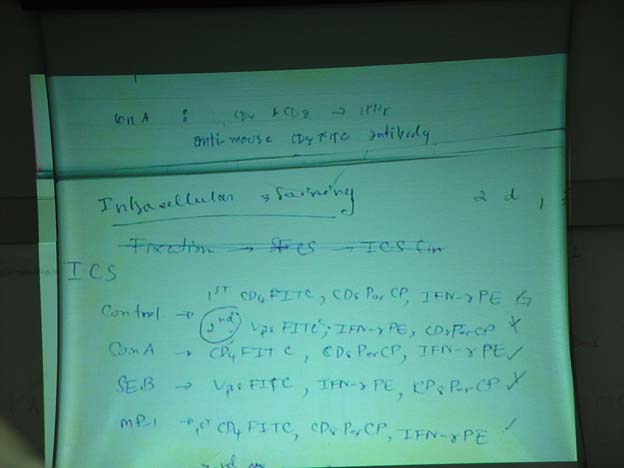 Con A :
anti-mouse CD4 FITC antibody
Intracellular staining
2 d,
Fixation → → ICS
ICS
Control → 1ST CD4 FITC, CD8 PerCP, IFN-γ PE
2nd Vβ8 FITC, IFN-γ PE, CD8 PerCP ✗
Con A → CD4 FITC, CD8 PerCP, IFN-γ PE ✓
SEB → Vβ8 FITC, IFN-γ PE, CD8 PerCP ✗
→ 1st CD4 FITC, CD8 PerCP, IFN-γ PE ✓